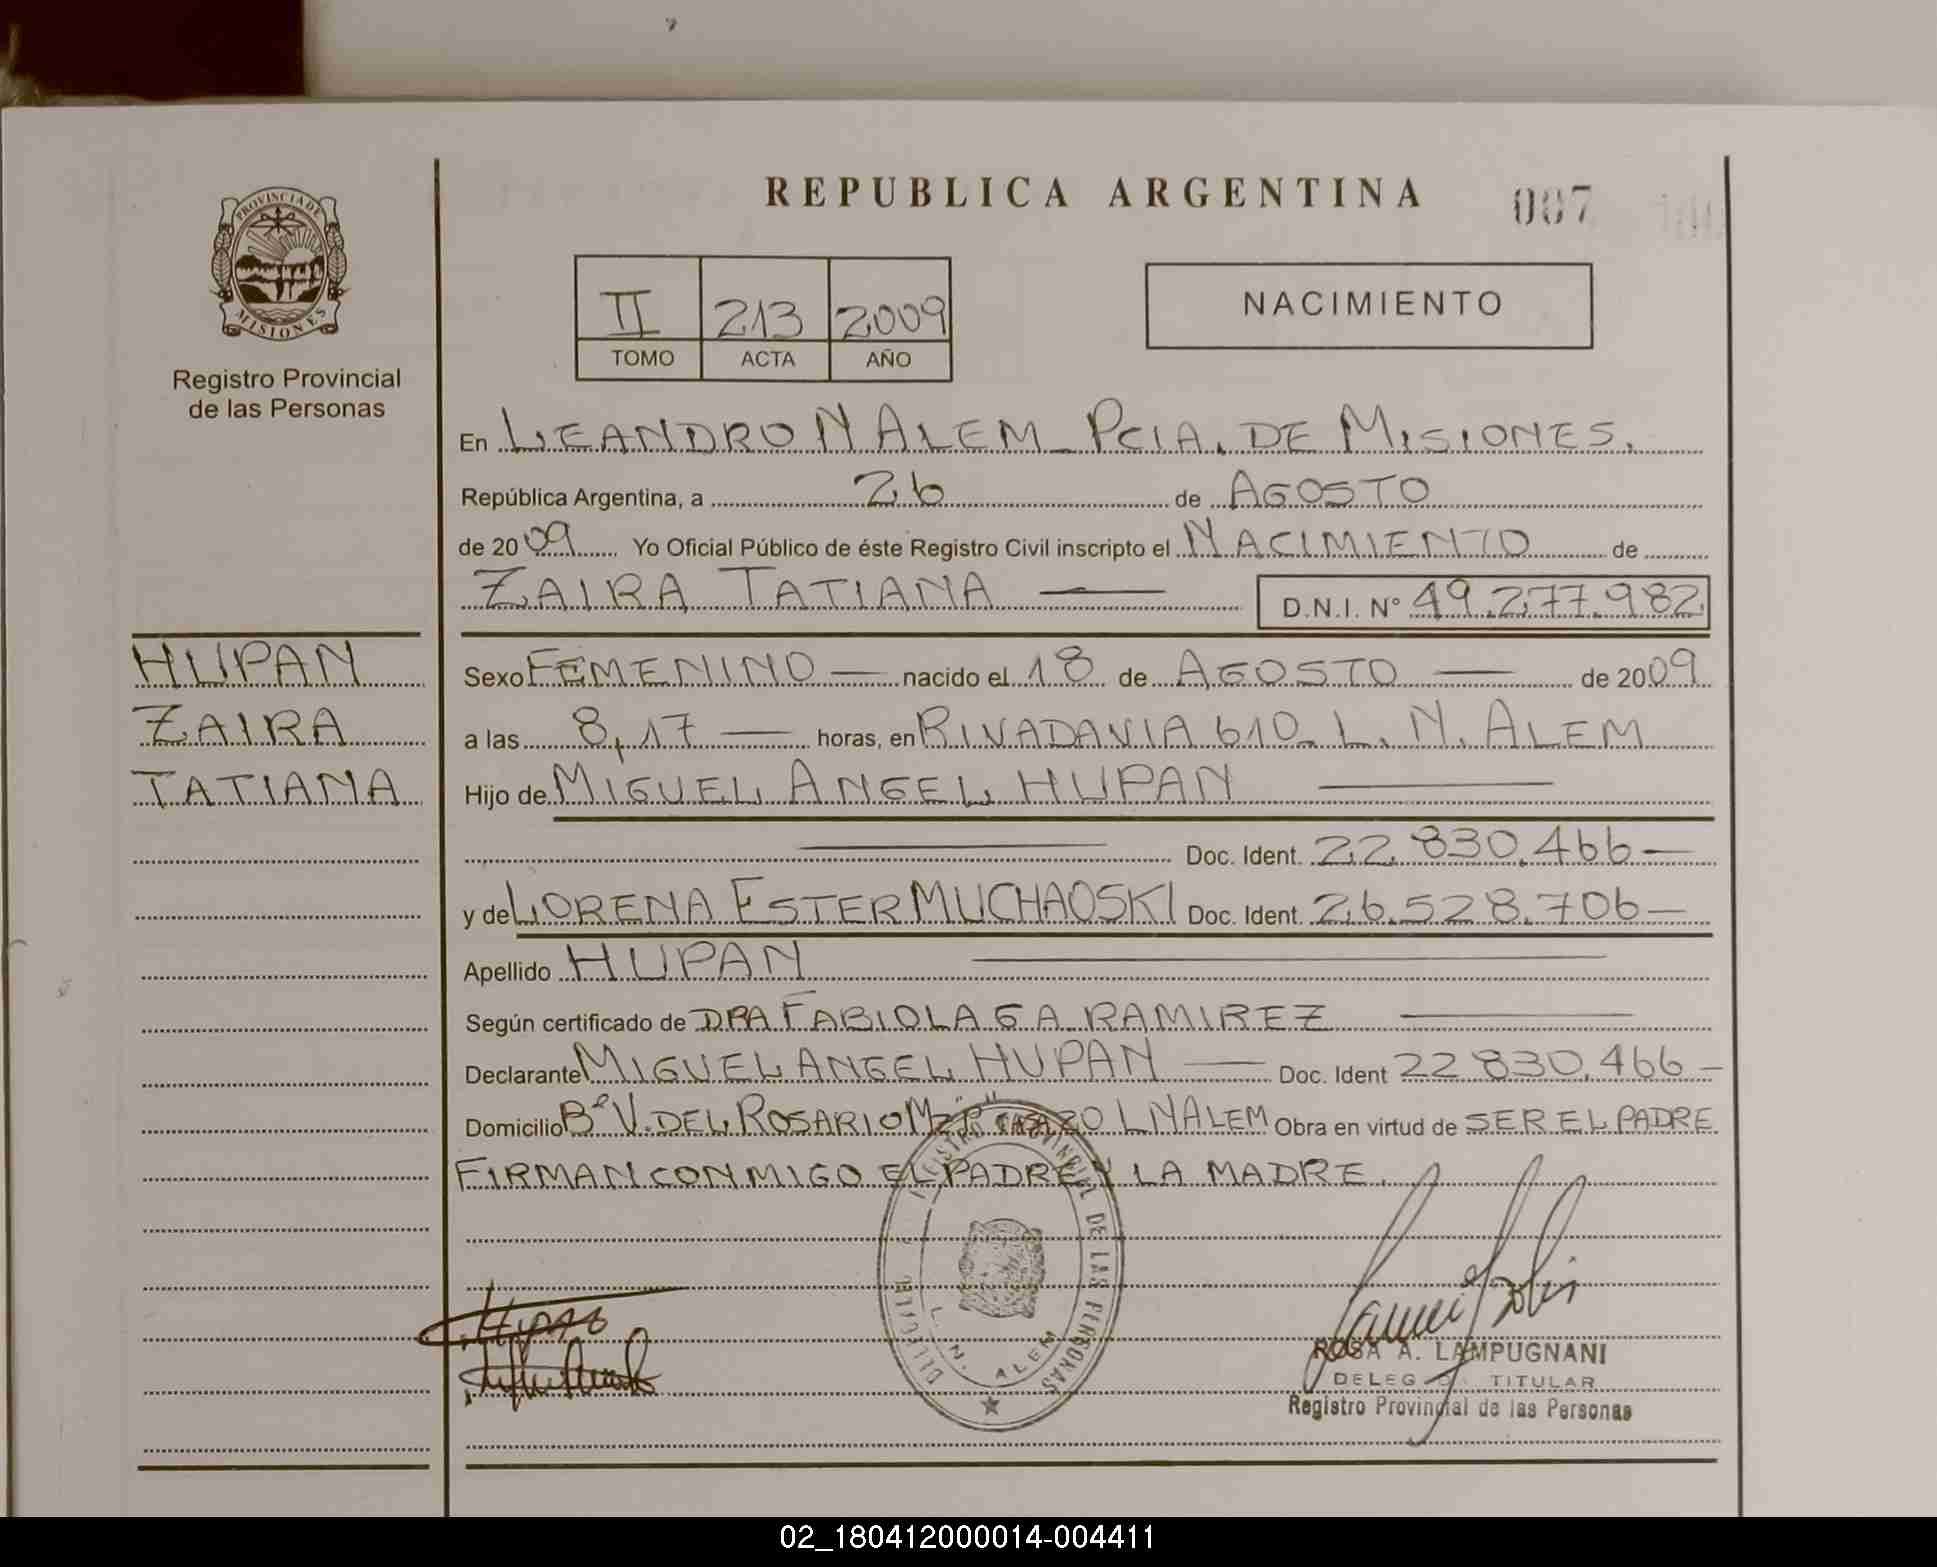 REPUBLICA ARGENTINA
007
PROVINCIA DE
MISIONES
Registro Provincial
de las Personas
II 213 2009
TOMO ACTA AÑO
NACIMIENTO
En LEANDRO N ALEM PCIA. DE MISIONES.
República Argentina, a 26 de AGOSTO
de 2009 Yo Oficial Público de éste Registro Civil inscripto el NACIMIENTO de
ZAIRA TATIANA — D.N.I. N° 49.277.982
HUPAN
ZAIRA
TATIANA
Sexo FEMENINO — nacido el 18 de AGOSTO — de 2009
a las 8,17 — horas, en RIVADAVIA 610. L. N. ALEM
Hijo de MIGUEL ANGEL HUPAN —
— Doc. Ident. 22.830.466 —
y de LORENA ESTER MUCHAOSKI Doc. Ident. 26.528.706 —
Apellido HUPAN —
Según certificado de DRA FABIOLA G A RAMIREZ —
Declarante MIGUEL ANGEL HUPAN — Doc. Ident 22 830.466 —
Domicilio B° V. DEL ROSARIO L N ALEM Obra en virtud de SER EL PADRE
FIRMAN CONMIGO EL PADRE Y LA MADRE.
REGISTRO PROVINCIAL DE LAS PERSONAS
L. N. ALEM
ROSA A. LAMPUGNANI
TITULAR
Registro Provincial de las Personas
02_180412000014-004411